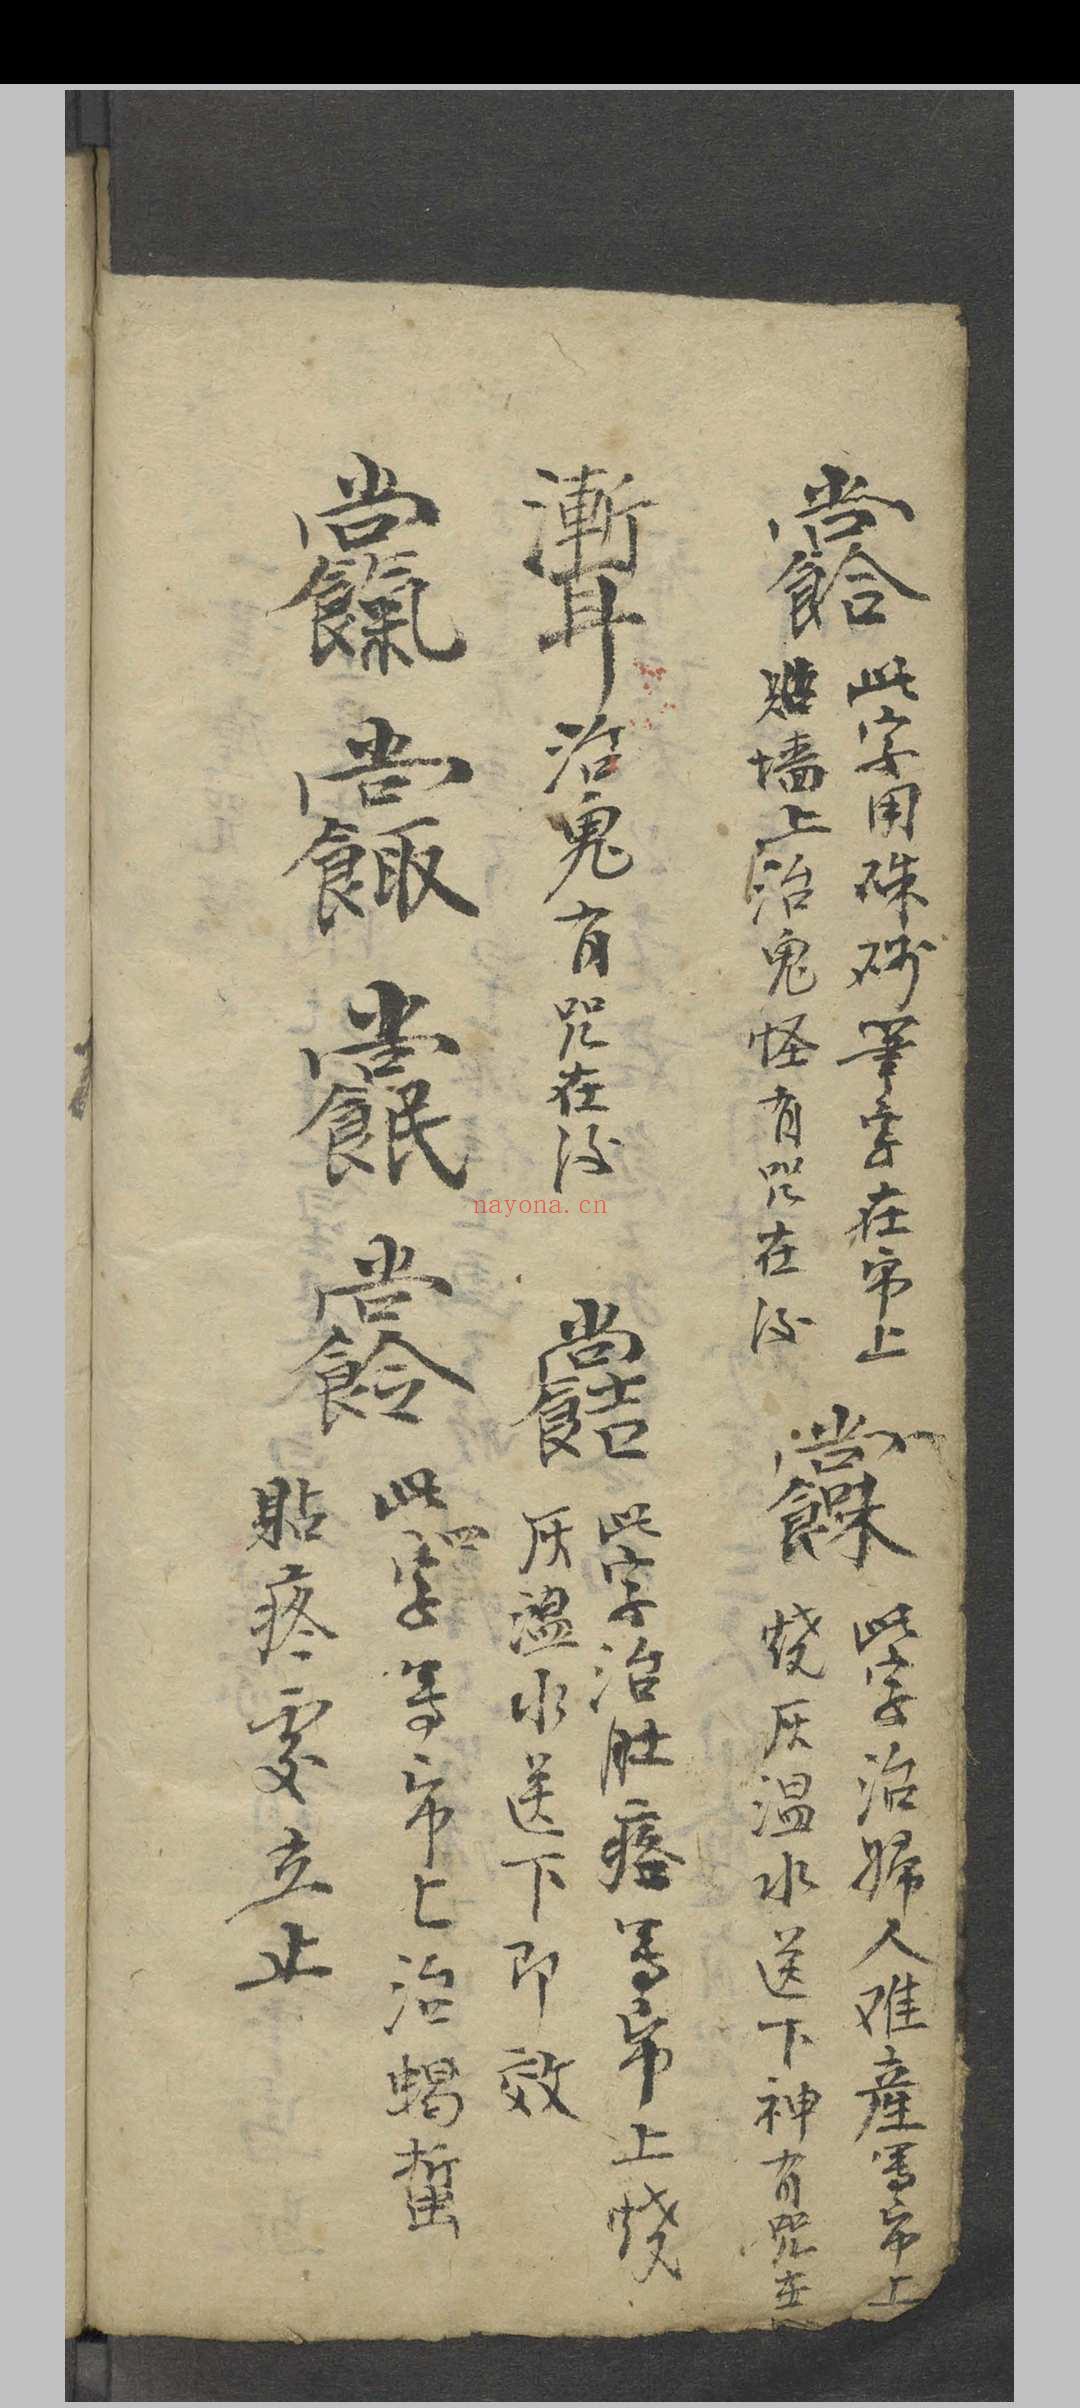 此字用硃砂筆書在帋上
貼墙上治鬼怪有咒在後
此字治婦人难產寫帋上
燒灰温水送下神有咒在
治鬼有咒在後
此字治肚痛寫帋上燒
灰温水送下即效
此四字寫帋上治蝎蜇
貼疼處立止
nayona.cn